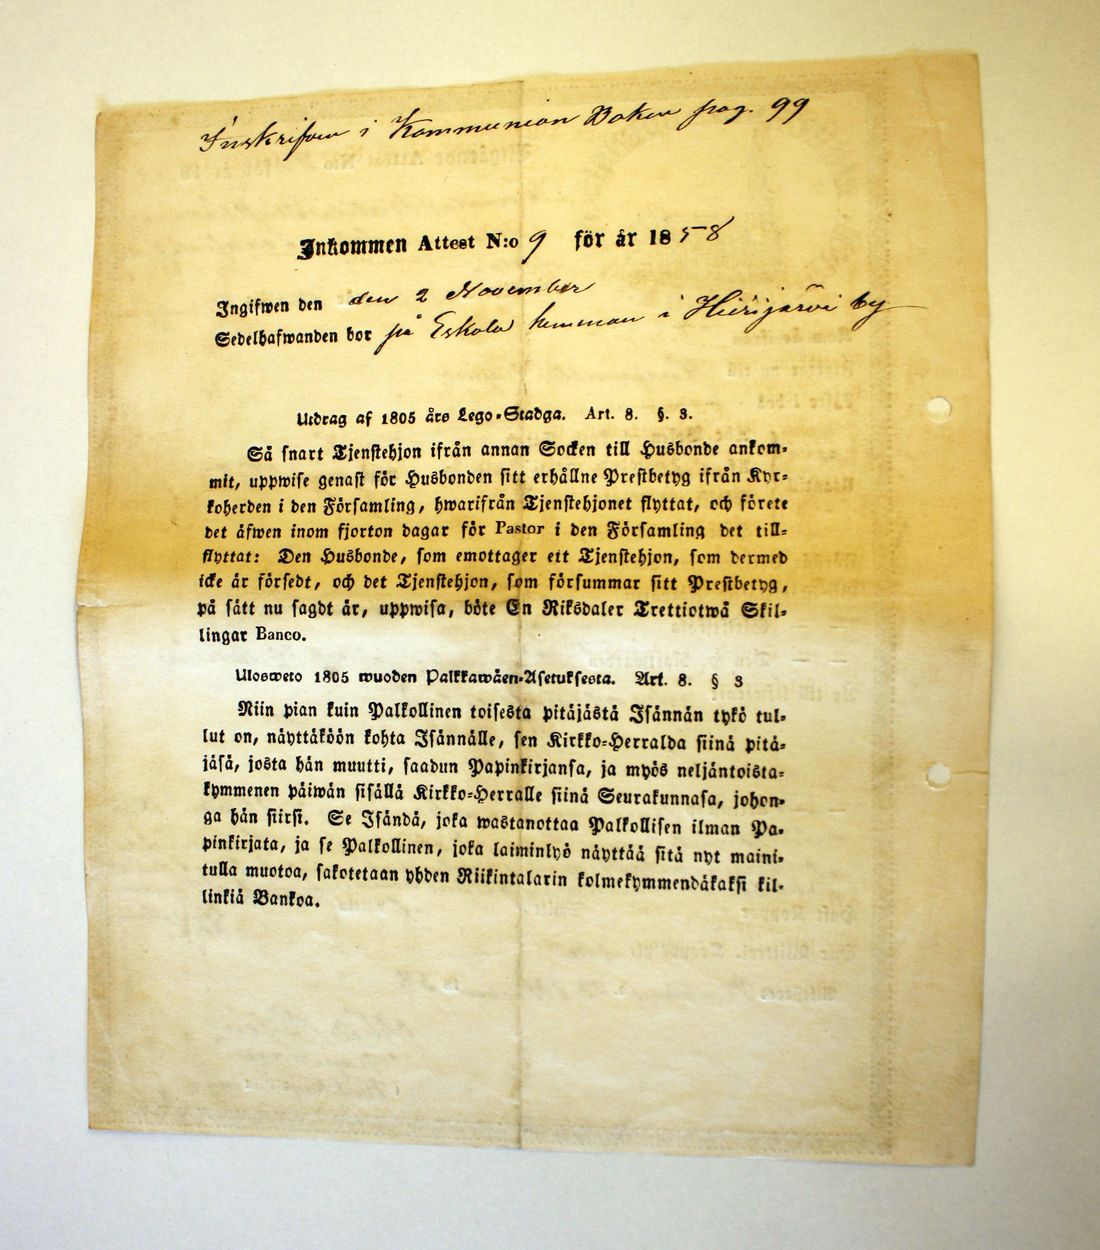 Inskrifven i Kommunion Boken pag. 99
Inkommen Attest N:o 9 för år 1858
Ingifwen den den 2 November
Sedelhafwanden bor på Eskola hemman i Hiirijärvi by
Utdrag af 1805 års Lego-Stadga. Art. 8. §. 3.
Så snart Tjenstehjon ifrån annan Socken till Husbonde ankom-
mit, uppwise genast för Husbonden sitt erhållne Prestbetyg ifrån Kyr-
koherden i den Församling, hwarifrån Tjenstehjonet flyttat, och förete
det äfwen inom fjorton dagar för Pastor i den Församling det till-
flyttat: Den Husbonde, som emottager ett Tjenstehjon, som dermed
icke är försedt, och det Tjenstehjon, som försummar sitt Prestbetyg,
på sätt nu sagdt är, uppwisa, böte En Riksdaler Trettiotwå Skil-
lingar Banco.
Ulosweto 1805 wuoden Palkkawäen-Asetuksesta. Art. 8. § 3
Niin pian kuin Palkollinen toisesta pitäjästä Isännän tykö tul-
lut on, näyttäköön kohta Isännälle, sen Kirkko-Herralda siinä pitä-
jäsä, josta hän muutti, saadun Papinkirjansa, ja myös neljäntoista-
kymmenen päiwän sisällä Kirkko-Herralle siinä Seurakunnasa, johon-
ga hän siirsi. Se Isändä, joka wastanottaa Palkollisen ilman Pa-
pinkirjata, ja se Palkollinen, joka laiminlyö näyttää sitä nyt maini-
tulla muotoa, sakotetaan yhden Riikintalarin kolmekymmendäkaksi kil-
linkiä Bankoa.